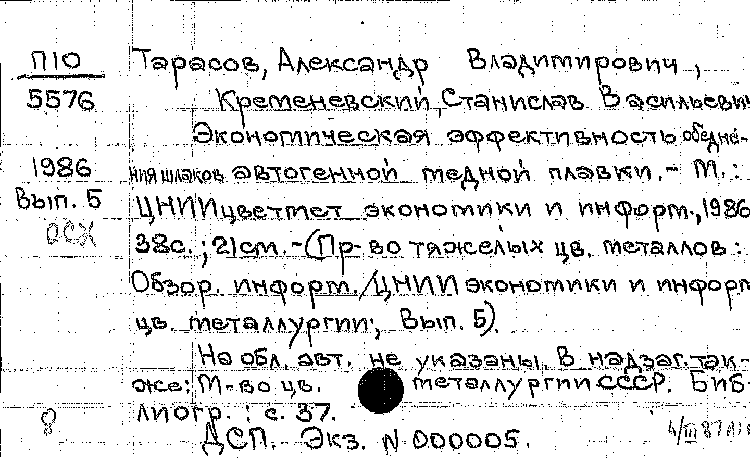 П10
5576
1986
Вып. 5
ОСХ
Тарасов, Александр Владимирович,
Кременевский, Станислав Васильевич
Экономическая эффективность обедне-
ния шлаков автогенной медной плавки. - М. :
ЦНИИцветмет экономики и информ., 1986
38с. ; 21 см. - (Пр-во тяжелых цв. металлов :
Обзор. информ. / ЦНИИ экономики и информ
цв. металлургии ; Вып. 5).
На обл. авт. не указаны. В надзаг. так-
же: М-во цв. металлургии СССР. Биб
лиогр. : с. 37.
ДСП. Экз. N 000005.
8